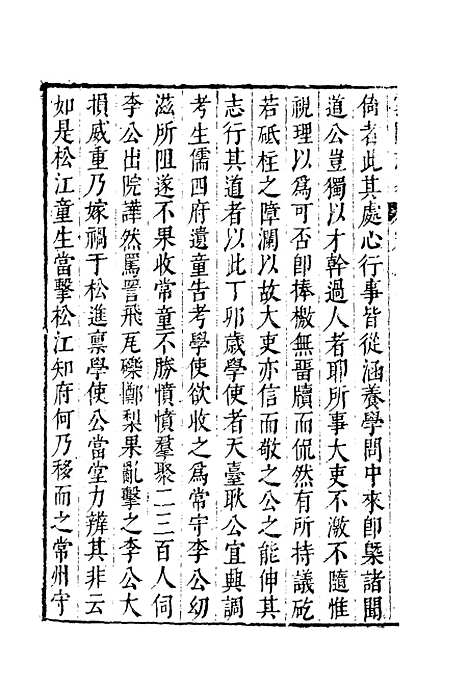 倚者此其處心行事皆從涵養學問中來卽槩諸聞
道公豈獨以才幹過人者聊所事大吏不激不隨惟
視理以爲可否卽捧檄無畱牘而侃然有所持議矻
若砥柱之障瀾以故大吏亦信而敬之公之能伸其
志行其道者以此丁夘歲學使者天臺耿公宜興調
考生儒四府遺童告考學使欲收之爲常守李公幼
滋所阻遂不果收常童不勝憤憤羣聚二三百人伺
李公出院譁然罵詈飛瓦礫擲梨果亂擊之李公大
損威重乃嫁禍于松進稟學使公當堂力辨其非云
如是松江童生當擊松江知府何乃移而之常州守